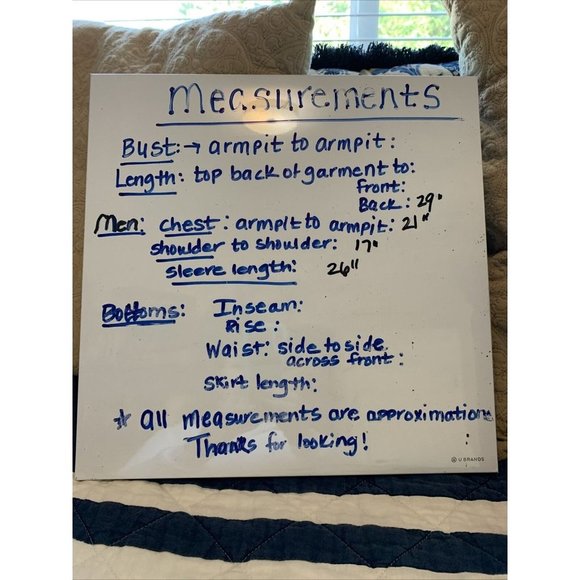 Measurements
Bust:→ armpit to armpit:
Length: top back of garment to:
front:
Back: 29"
Men: chest: armpit to armpit: 21"
shoulder to shoulder: 17"
sleeve length: 26"
Bottoms: Inseam:
Rise:
Waist: side to side
across front:
skirt length:
* all measurements are approximation
Thanks for looking!
U BRANDS